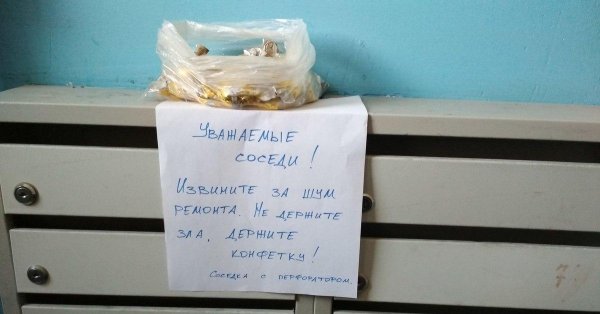 Уважаемые
соседи!
Извините за шум
ремонта. Не держите
зла, держите
конфетку!
Соседка с перфоратором.